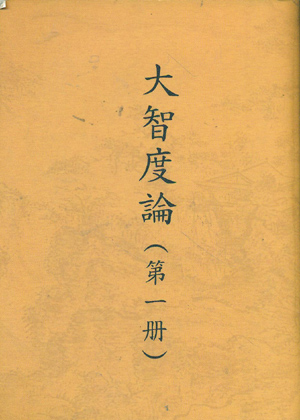 大智度論(第一册)